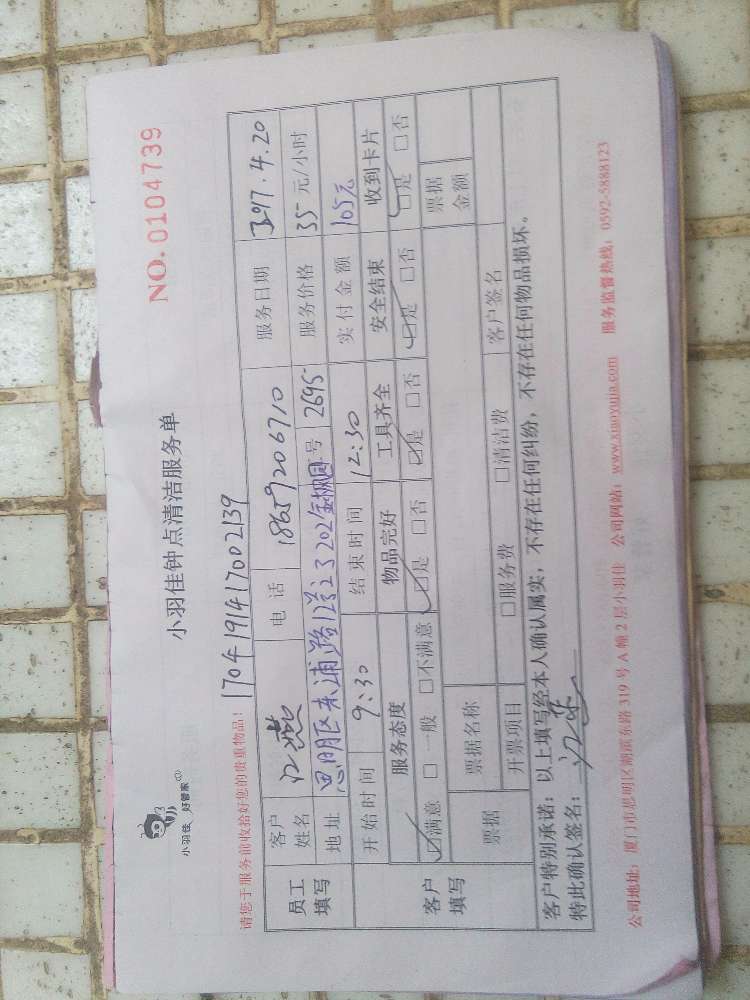 小羽佳 好管家
小羽佳钟点清洁服务单
NO. 0104739
请您于服务前收拾好您的贵重物品！
1704191417002139
员工填写
客户姓名 江燕 电话 18659206710 服务日期 4.20
地址 思明区东浦路12号23202 号 2695 服务价格 35元/小时
开始时间 9:30 结束时间 12:30 实付金额 105元
客户填写
服务态度 物品完好 工具齐全 安全结束 收到卡片
☑满意 □一般 □不满意 ☑是 □否 ☑是 □否 ☑是 □否 ☑是 □否
票据 票据名称 票据金额
开票项目 □服务费 □清洁费 客户签名
客户特别承诺：以上填写经本人确认属实，不存在任何纠纷，不存在任何物品损坏。
特此确认签名：
公司地址：厦门市思明区湖滨东路319号A幢2层小羽佳 公司网站：www.xiaoyujia.com 服务监督热线：0592-5888123